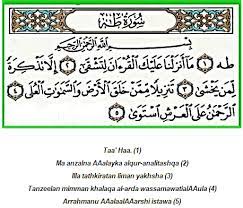 سورة طه
بسم الله الرحمن الرحيم
طه ١ ما أنزلنا عليك القرءان لتشقى ٢ إلا تذكرة
لمن يخشى ٣ تنزيلا ممن خلق الأرض والسموت العلى ٤
الرحمن على العرش استوى ٥
Taa' Haa. (1)
Ma anzalna AAalayka alqur-analitashqa (2)
Illa tathkiratan liman yakhsha (3)
Tanzeelan mimman khalaqa al-arda wassamawatialAAula (4)
Arrahmanu AAalaalAAarshi istawa (5)